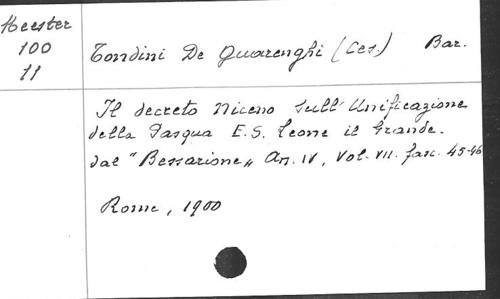 Heester
100
11
Tondini De Quarenghi (Ces.) Bar.
Il decreto Niceno sull' Unificazione
della Pasqua E.S. Leone il Grande.
dal "Bessarione" An. IV, Vol. VII. fasc. 45-46
Rome, 1900